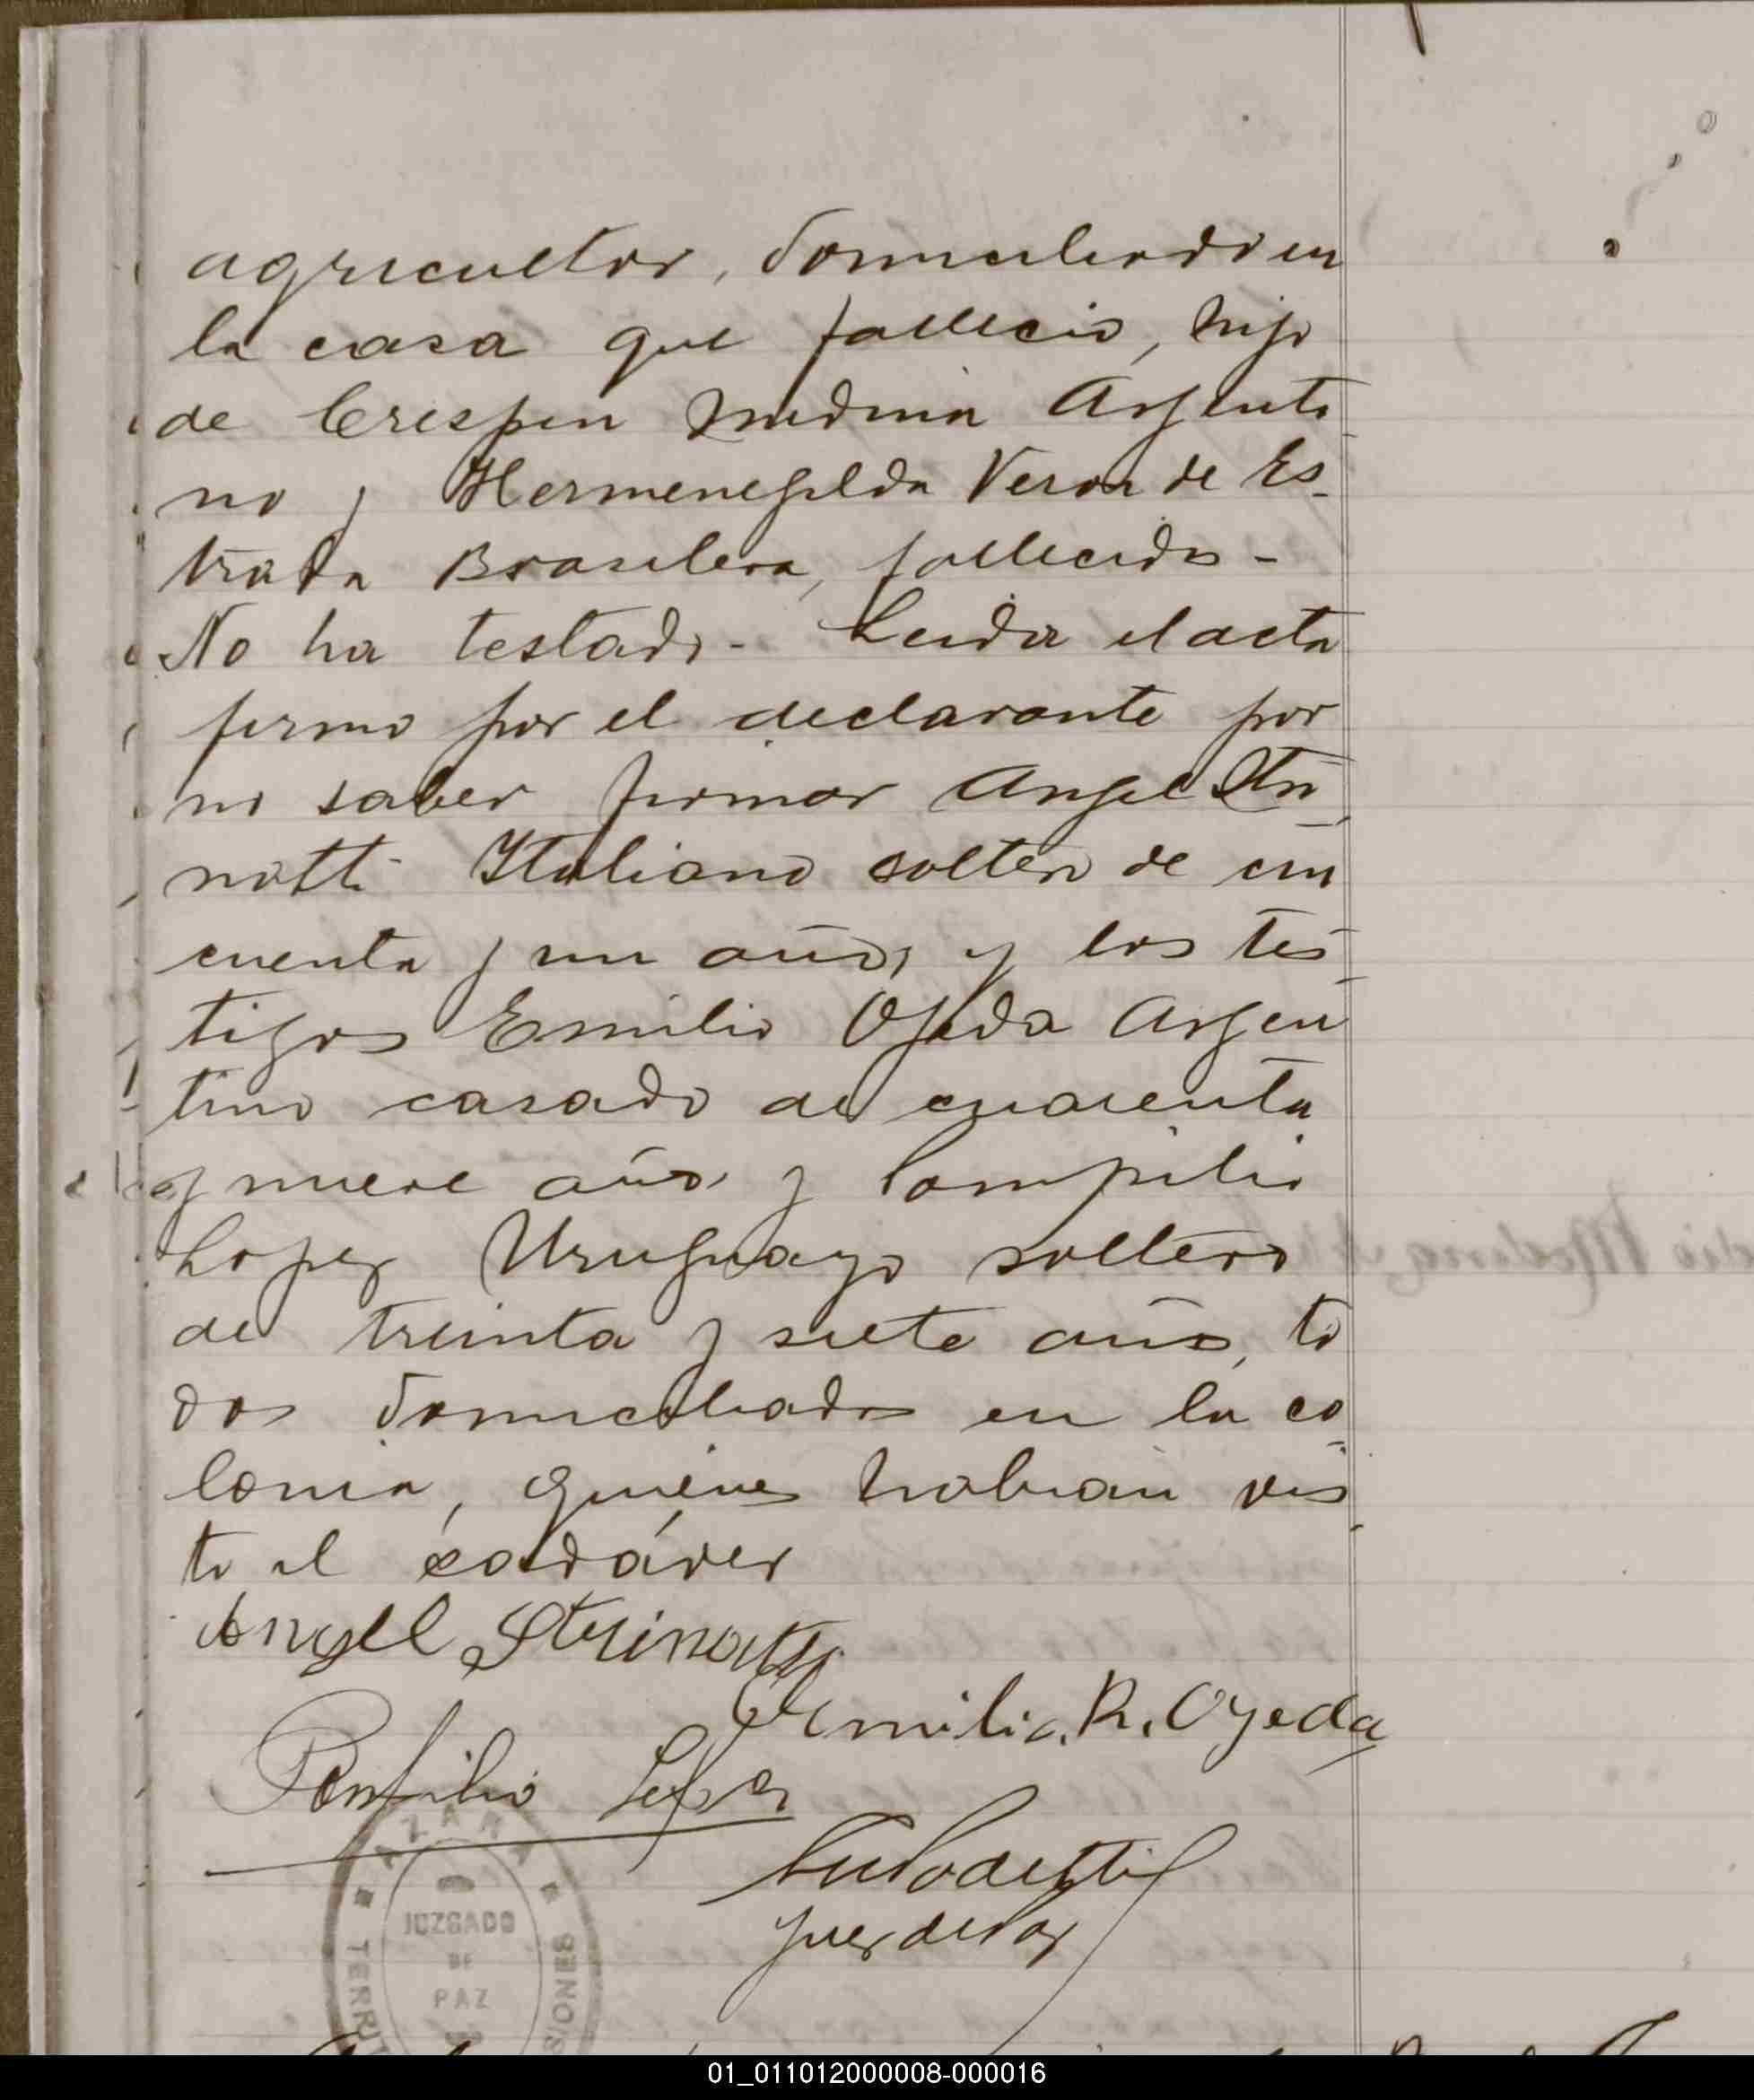 agricultor, domiciliado en
la casa que fallecio, hijo
de Crespin Medina Argenti
no y Hermenegilda Veron de Es-
trada Brasilera, fallecidos -
No ha testado - Leida el acta
firmo por el declarante por
no saber firmar Angel Stri
notti Italiano soltero de cin
cuenta y un años y los tes
tigos Emilio Ojeda Argen
tino casado de cuarenta
y nueve años y Pompilio
Lopez Uruguayo soltero
de treinta y siete años, to
dos domiciliados en la co
lonia, quienes habian vis
to el cadáver
Angel Strinotti
Emilio. R. Oyeda
Ponpilio Lopez
Juez de Paz
JUZGADO
DE
PAZ
TERRIT
SIONES
01_011012000008-000016